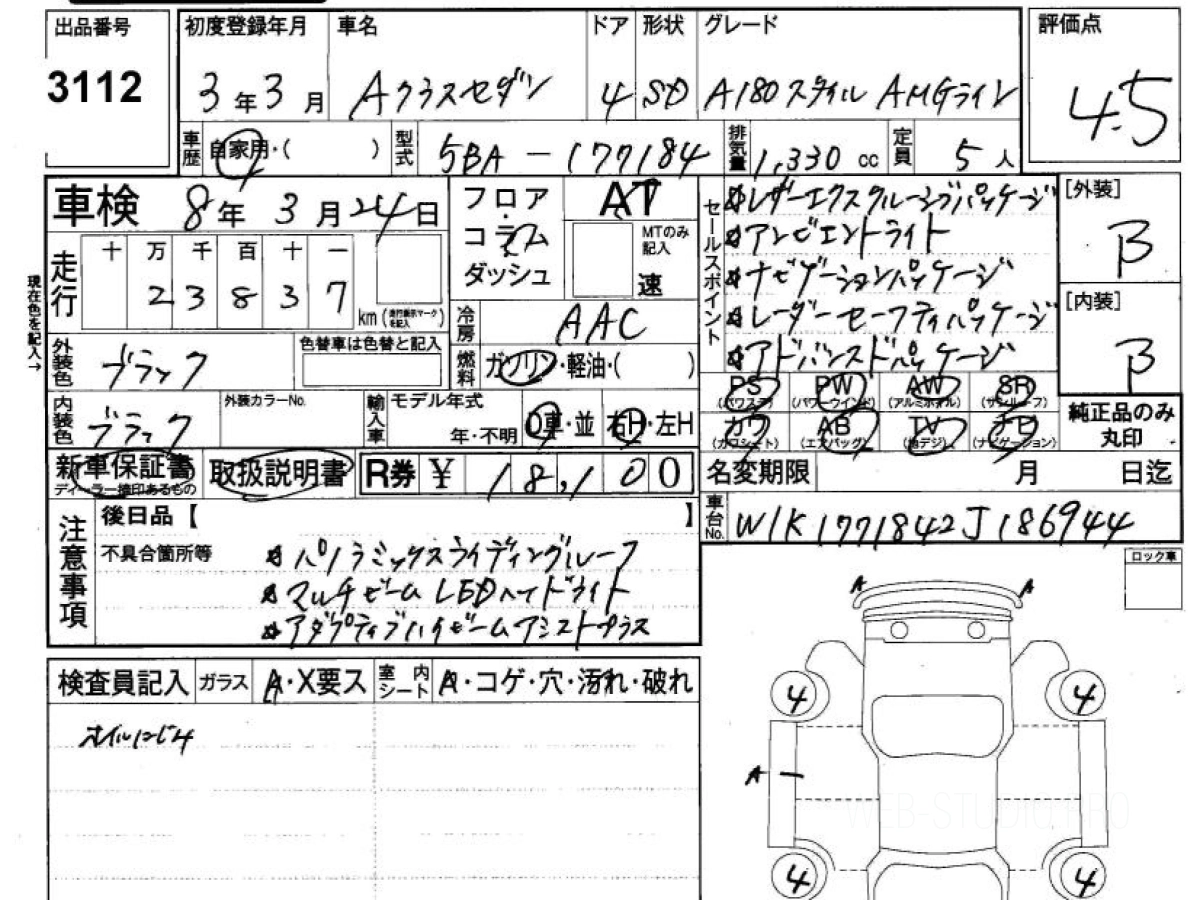 出品番号
3112
初度登録年月 車名 ドア 形状 グレード
3年3月 Aクラスセダン 4 SD A180スタイル AMGライン
評価点
4.5
車歴 自家用・( ) 型式 5BA-177184 排気量 1,330 cc 定員 5人
車検 8年3月24日
フロア・コラム ダッシュ
AT
MTのみ記入
速
セールスポイント
レザーエクスクルーシブパッケージ
アンビエントライト
ナビゲーションパッケージ
レーダーセーフティパッケージ
アドバンスドパッケージ
[外装]
B
[内装]
B
現在色を記入→
走行 十万千百十一
23837 km (走行表示マークを記入)
冷房 AAC
燃料 ガソリン・軽油・( )
外装色 ブラック
色替車は色替と記入
内装色 ブラック
外装カラーNo.
輸入車 モデル年式
年・不明 D車・並 右H・左H
PS (パワステ) PW (パワーウインド) AW (アルミホイル) SR (サンルーフ)
カワ (カワシート) AB (エアバッグ) TV (地デジ) ナビ (ナビゲーション)
純正品のみ丸印
新車保証書
ディーラー捺印あるもの
取扱説明書
R券 ¥ 18,100
名変期限 月 日迄
車台No. W1K1771842J186944
注意事項
後日品【 】
不具合箇所等
パノラミックスライディングルーフ
マルチビームLEDヘッドライト
アダプティブハイビームアシストプラス
ロック車
検査員記入 ガラス A・X要ス 室内シート A・コゲ・穴・汚れ・破れ
オイルにじみ
A A
4 4
A
4 4
WEB-STUDIO PRO